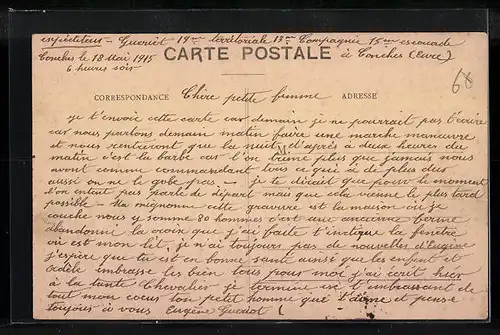 expéditeur - Gueriot 19me territoriale 13me Compagnie 15me escouade
Conches le 18 Mai 1915
CARTE POSTALE
à Conches (Eure)
6 heures soir
68
CORRESPONDANCE
Chère petite femme
ADRESSE
je t'envoie cette carte car demain je ne pourrait pas t'écrire
car nous partons demain matin faire une marche manœuvre
et nous rentreront que la nuit d'après à deux heures du
matin c'est la barbe car l'on trime plus que jamais nous
avont comme commandant tous ce qui a de plus
aussi on ne le gobe pas - je te dirait que pour le moment
l'on entait pas parle de départ mais que cela vienne le plus tard
possible - Ma mignonne cette gravure est la maison où je
couche nous y somme 80 hommes c'est une ancienne ferme
abandonni la croix que j'ai faite t'indique la fenêtre
où est mon lit, je n'ai toujours pas de nouvelles d'Eugène
j'espère que tu est en bonne santé ainsi que les enfant et
Adèle embrasse les bien tous pour moi j'ai écrit hier
à la tante Chevalier je termine est t'embrassant de
tout mon cœur ton petit homme qui t'aime et pense
toujours à vous Eugène Gueriot